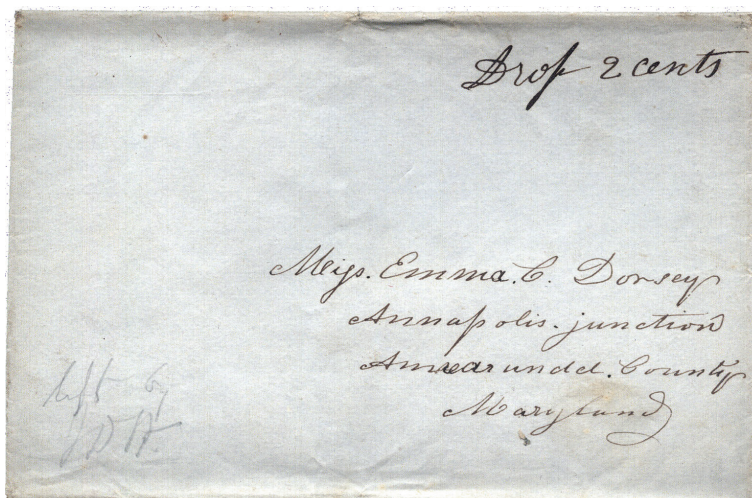 Drop 2 cents
Miss. Emma. C. Dorsey
Annapolis. junction
Annearundel. County
Maryland
left by